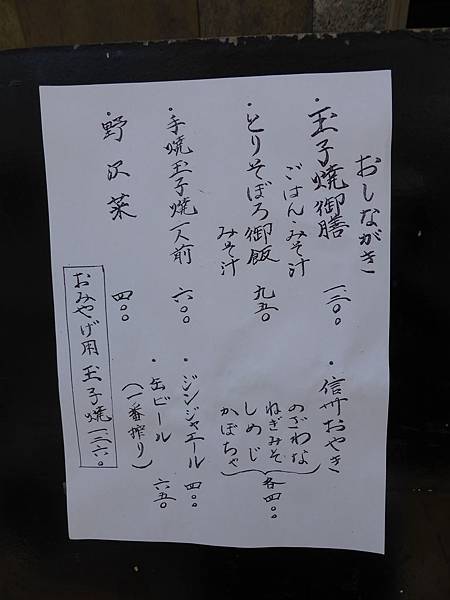 おしながき
・玉子焼御膳
ごはん・みそ汁
一、三〇〇
・とりそぼろ御飯
みそ汁
九五〇
・手焼玉子焼一人前
六〇〇
・野沢菜
四〇〇
・信州おやき
のざわな
ねぎみそ
しめじ
かぼちゃ
各四〇〇
・ジンジャエール
四〇〇
・缶ビール
(一番搾り)
六五〇
おみやげ用玉子焼一三六〇